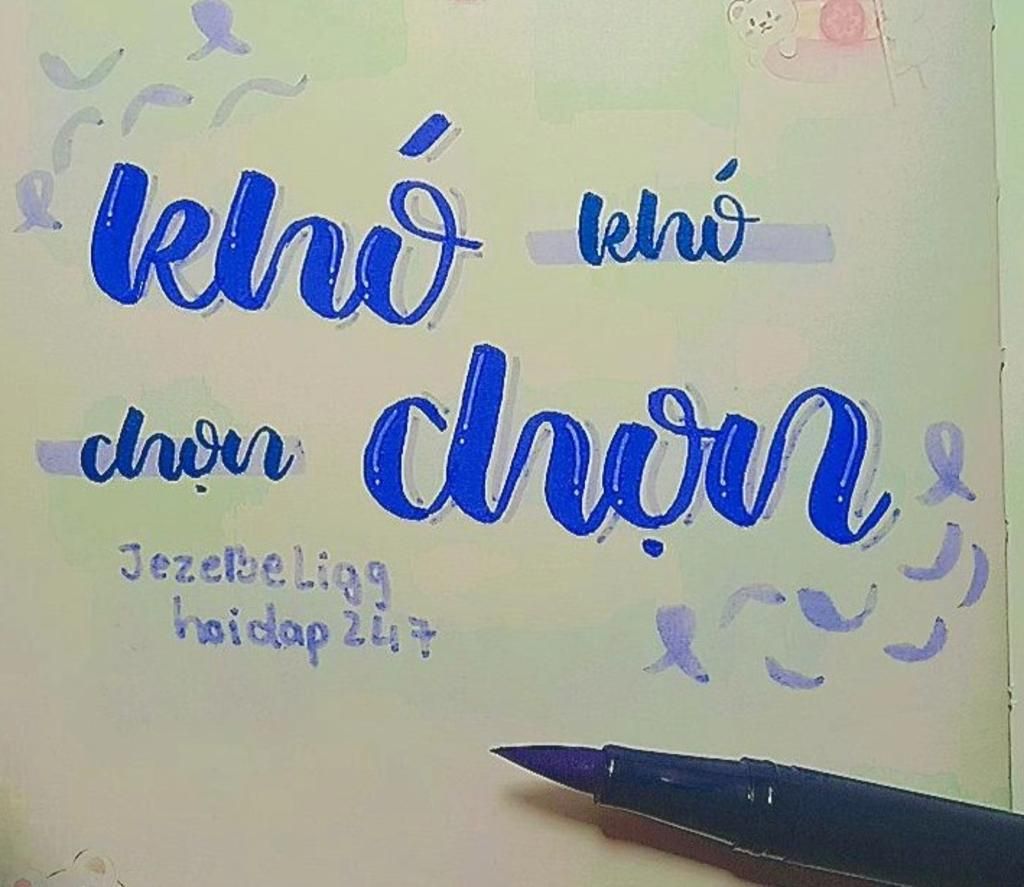 khó khó
chọn chọn
Jezebeligg
hoidap247